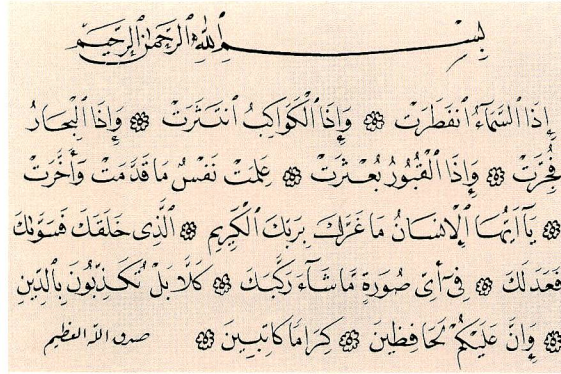 بِسْمِ ٱللَّهِ ٱلرَّحْمَٰنِ ٱلرَّحِيمِ
إِذَا ٱلسَّمَآءُ ٱنفَطَرَتْ ۞ وَإِذَا ٱلْكَوَاكِبُ ٱنتَثَرَتْ ۞ وَإِذَا ٱلْبِحَارُ
فُجِّرَتْ ۞ وَإِذَا ٱلْقُبُورُ بُعْثِرَتْ ۞ عَلِمَتْ نَفْسٌ مَا قَدَّمَتْ وَأَخَّرَتْ
۞ يَآ أَيُّهَا ٱلْإِنسَانُ مَا غَرَّكَ بِرَبِّكَ ٱلْكَرِيمِ ۞ ٱلَّذِى خَلَقَكَ فَسَوَّىٰكَ
فَعَدَلَكَ ۞ فِىٓ أَىِّ صُورَةٍ مَّا شَآءَ رَكَّبَكَ ۞ كَلَّا بَلْ تُكَذِّبُونَ بِٱلدِّينِ
۞ وَإِنَّ عَلَيْكُمْ لَحَافِظِينَ ۞ كِرَامًا كَاتِبِينَ ۞ صدق الله العظيم